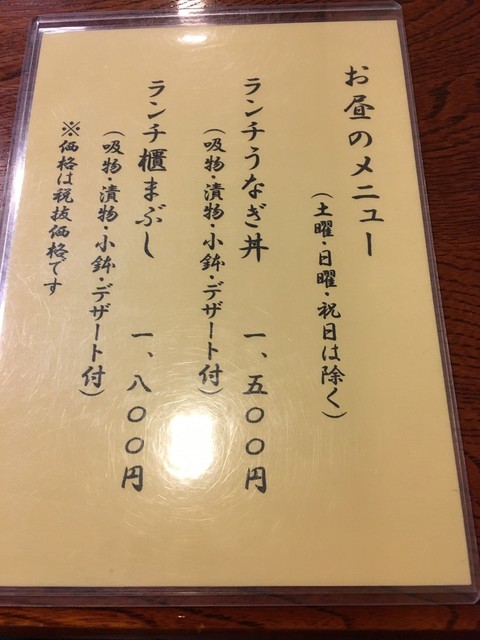 お昼のメニュー
(土曜・日曜・祝日は除く)
ランチうなぎ丼 一、五〇〇円
(吸物・漬物・小鉢・デザート付)
ランチ櫃まぶし 一、八〇〇円
(吸物・漬物・小鉢・デザート付)
※価格は税抜価格です